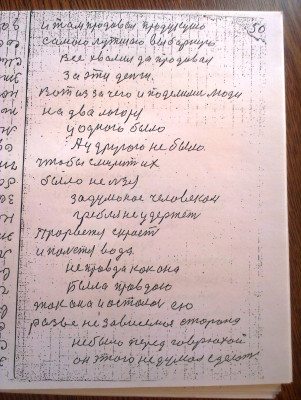 50
и там продовал продукцию
самою лутшою выбарную
Все хвалил да продовал
За эти денги.
Вот из за чего и поделили люди
на два лагоря
у одного было
А у другого не было
чтобы слишит их
было не лзя
задуманое человеком
гребля не удержет
Прорвется скрост
и полется вода
неправда как она
Была правдою
так она и осталос ею
разве не зависемая сторона
небыло перед говрюхой
он этого не думал сделат